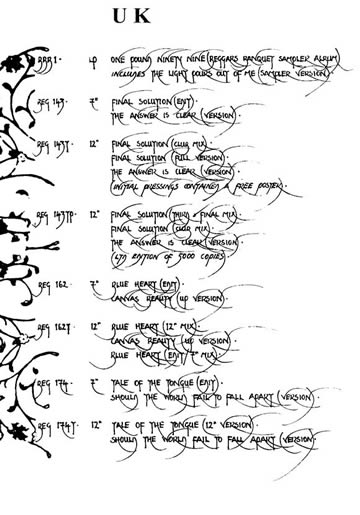 UK
BBB1 · LP ONE POUND NINETY NINE (BEGGARS BANQUET SAMPLER ALBUM)
INCLUDES THE LIGHT POURS OUT OF ME (SAMPLER VERSION) ·
BEG 143 · 7" FINAL SOLUTION (EDIT) ·
THE ANSWER IS CLEAR (VERSION) ·
BEG 143T · 12" FINAL SOLUTION (CLUB MIX) ·
FINAL SOLUTION (FULL VERSION) ·
THE ANSWER IS CLEAR (VERSION) ·
(INITIAL PRESSINGS CONTAINED A FREE POSTER) ·
BEG 143TP · 12" FINAL SOLUTION (THIRD & FINAL MIX) ·
FINAL SOLUTION (CLUB MIX) ·
THE ANSWER IS CLEAR (VERSION) ·
(LTD EDITION OF 5000 COPIES)
BEG 162 · 7" BLUE HEART (EDIT) ·
CANVAS BEAUTY (LP VERSION) ·
BEG 162T · 12" BLUE HEART (12" MIX) ·
CANVAS BEAUTY (LP VERSION) ·
BLUE HEART (EDIT/7" MIX) ·
BEG 174 · 7" TALE OF THE TONGUE (EDIT) ·
SHOULD THE WORLD FAIL TO FALL APART (VERSION) ·
BEG 174T · 12" TALE OF THE TONGUE (12" VERSION) ·
SHOULD THE WORLD FAIL TO FALL APART (VERSION) ·